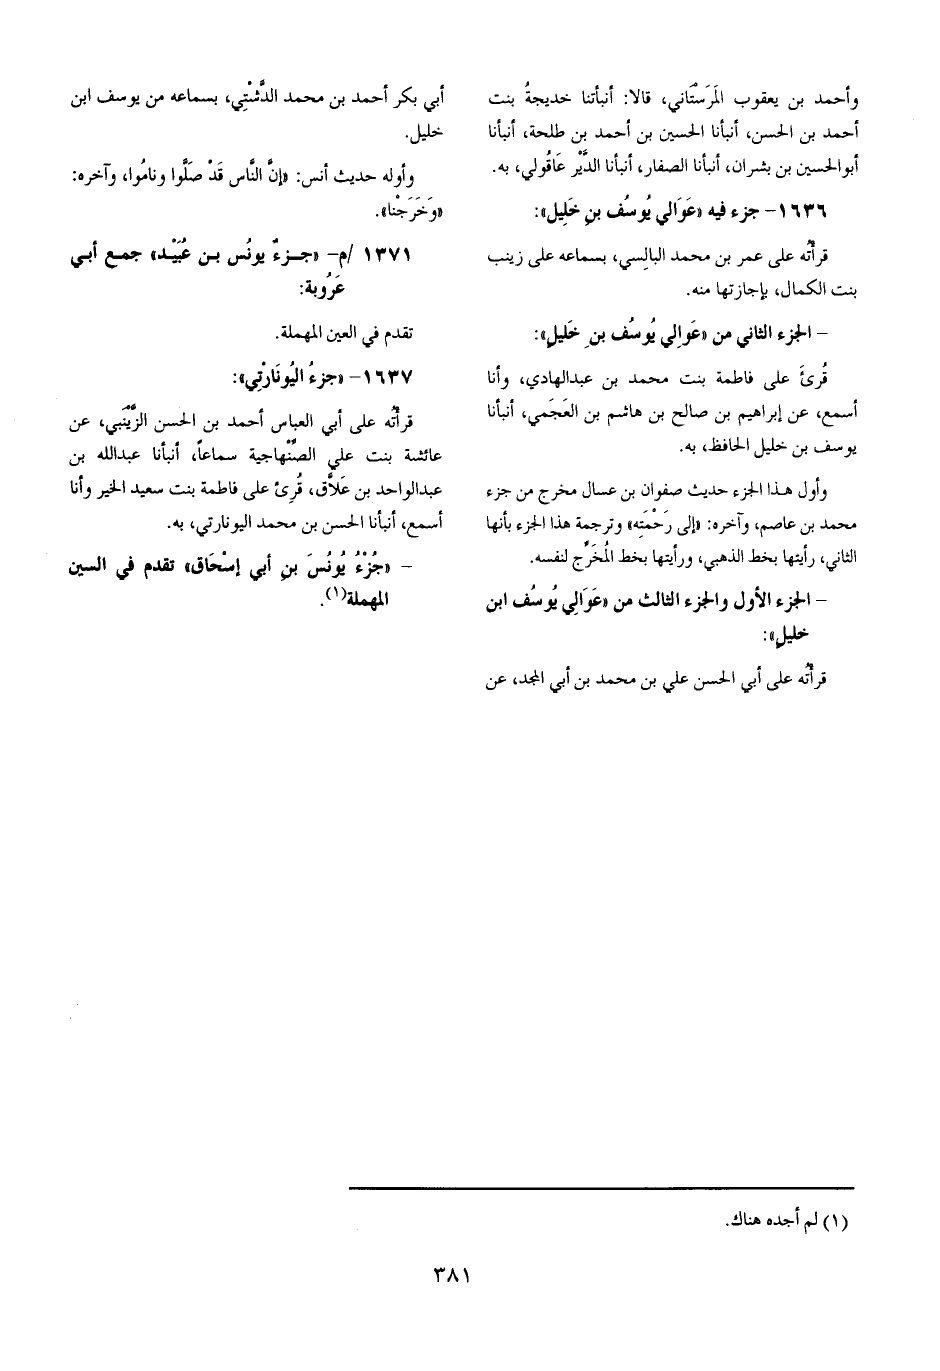 وأحمد بن يعقوب المَرَسْتَاني، قالا: أنبأتنا خديجةُ بنت
أحمد بن الحسن، أنبأنا الحسين بن أحمد بن طلحة، أنبأنا
أبوالحسين بن بشران، أنبأنا الصفار، أنبأنا الدَّيْر عَاقُولي، به.
١٦٣٦- جزء فيه «عَوَالي يُوسُف بنِ خَلِيل»:
قرأتُه على عمر بن محمد البالِسي، بسماعه على زينب
بنت الكمال، بإجازتها منه.
– الجزء الثاني من «عَوالِي يُوسُف بنِ خَليلِ»:
قُرئَ على فاطمة بنت محمد بن عبدالهادي، وأنا
أسمع، عن إبراهيم بن صالح بن هاشم بن العَجَمي، أنبأنا
يوسف بن خليل الحافظ، به.
وأول هذا الجزء حديث صفوان بن عسال مخرج من جزء
محمد بن عاصم، وآخره: «إلى رَحْمَتِه» وترجمة هذا الجزء بأنها
الثاني، رأيتها بخط الذهبي، ورأيتها بخط المُخَرِّج لنفسه.
– الجزء الأول والجزء الثالث من «عَوَالي يُوسُف ابن
خليلٍ»:
قرأتُه على أبي الحسن علي بن محمد بن أبي المجد، عن
أبي بكر أحمد بن محمد الدَّشْتِي، بسماعه من يوسف ابن
خليل.
وأوله حديث أنس: «إنَّ النَّاس قَدْ صَلَّوا ونامُوا، وآخره:
«وَخَرَجْنا».
١٣٧١ /م– «جزءٌ يونُس بن عُبَيْد» جمع أبي
عَرُوبة:
تقدم في العين المهملة.
١٦٣٧– «جزءُ اليُونَارْتِي»:
قرأتُه على أبي العباس أحمد بن الحسن الزَّيْنَبي، عن
عائشة بنت علي الصَّنْهاجية سماعاً، أنبأنا عبدالله بن
عبدالواحد بن عَلاَّق، قُرِئ على فاطمة بنت سعيد الخير وأنا
أسمع، أنبأنا الحسن بن محمد اليونارتي، به.
– «جُزْءُ يُونُسَ بنِ أبي إسْحَاق» تقدم في السين
المهملة(١).
(١) لم أجده هناك.
٣٨١